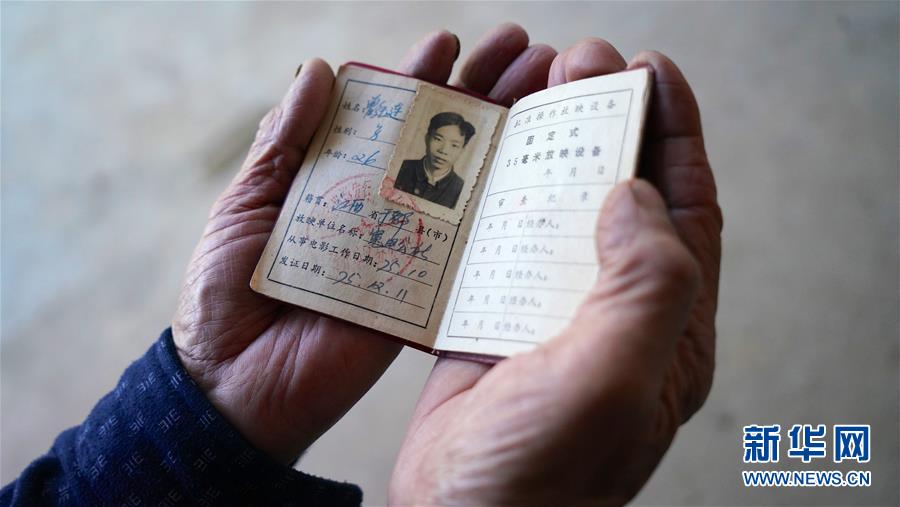 姓名:
性别: 男
年龄: 26
籍贯: 江西 省 于都 县(市)
放映单位名称: 宽田公社
从事电影工作日期: 75.10
发证日期: 75.12.11
批准操作放映设备
固定式
35毫米放映设备
年 月 日
审查纪录
年 月 日经办人:
年 月 日经办人:
年 月 日经办人:
年 月 日经办人:
年 月 日经办人:
新华网
WWW.NEWS.CN